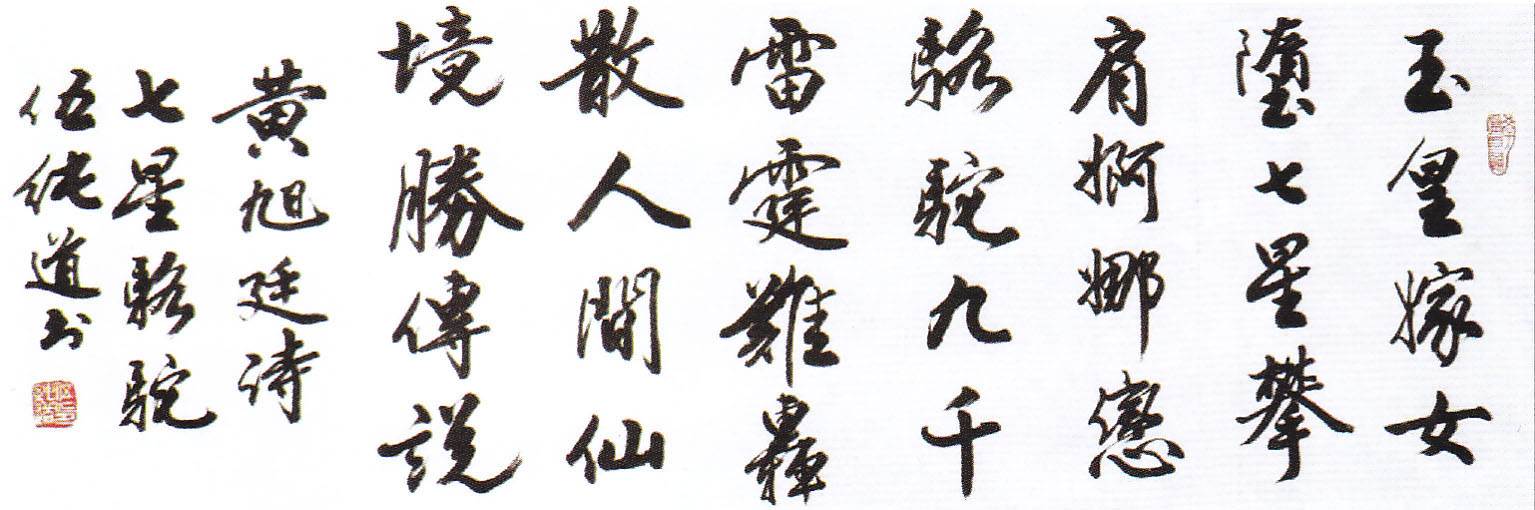 玉皇嫁女
墮七星攀
肩婀娜戀
駱駝九千
雷霆難轟
散人間仙
境勝傳說
黃旭廷詩
七星駱駝
伍純道书